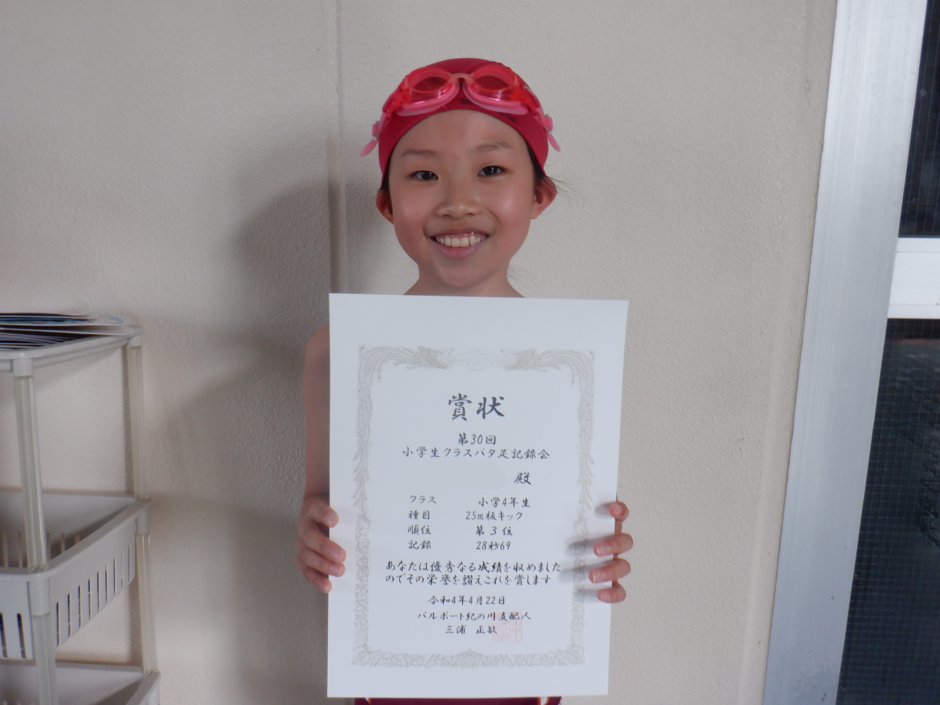 賞状
第30回
小学生クラスバタ足記録会
殿
クラス 小学4年生
種目 25m板キック
順位 第3位
記録 28秒69
あなたは優秀なる成績を収めました
のでその栄誉を讃えこれを賞します
令和4年4月22日
パルポート紀の川支配人
三浦 正敏